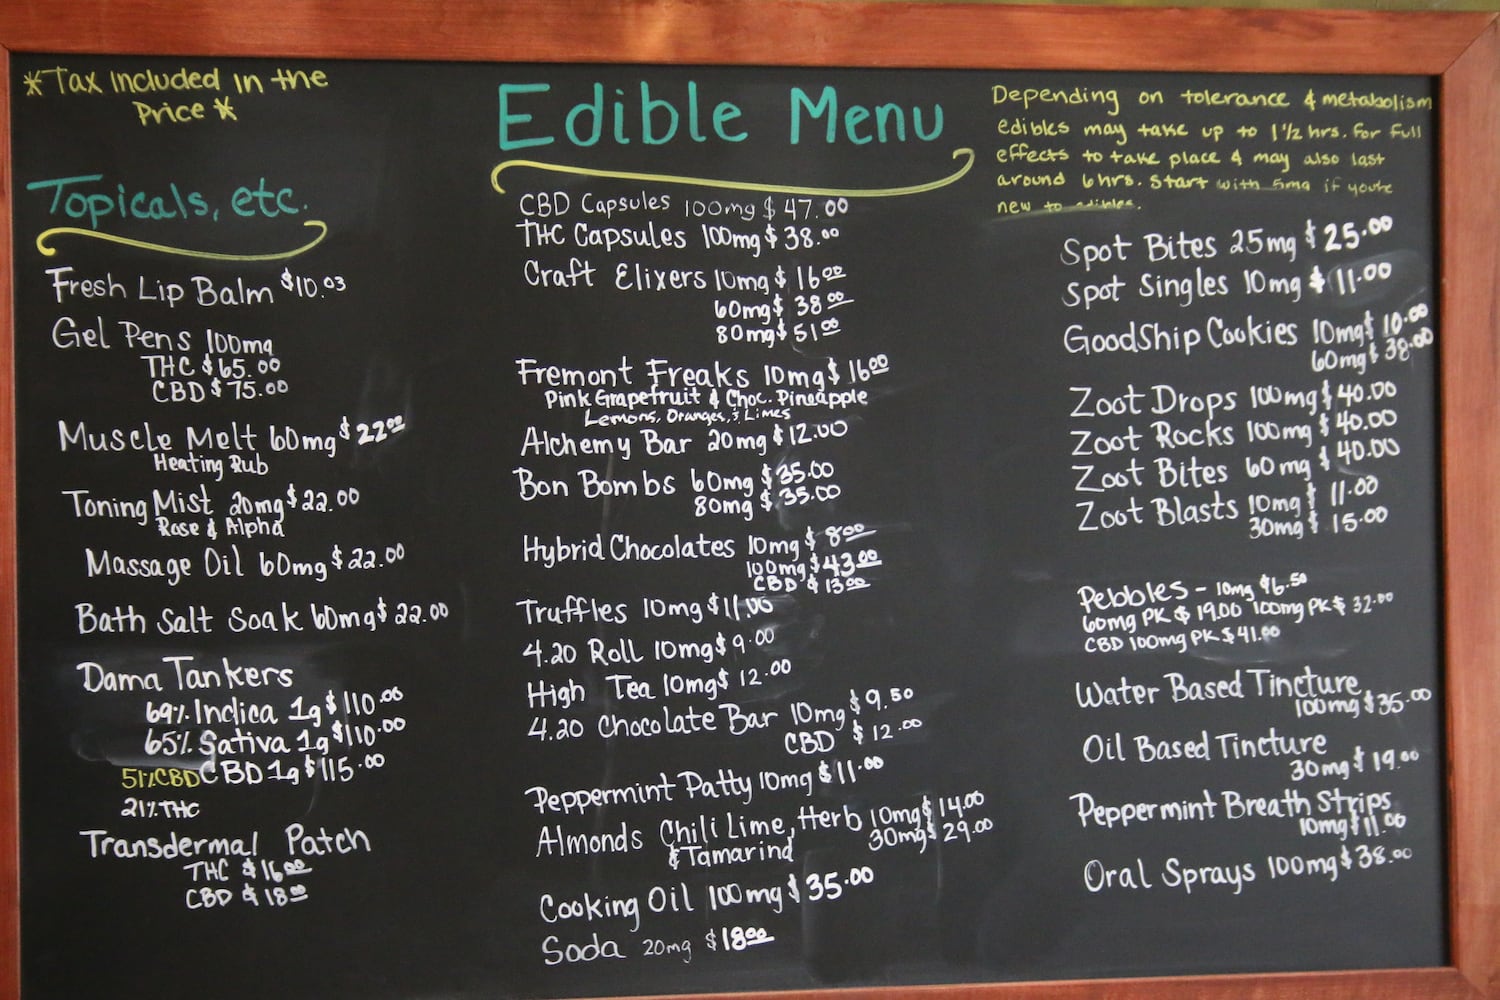 *Tax Included in the
Price*
Topicals, etc.
Fresh Lip Balm $10.03
Gel Pens 100mg
THC $65.00
CBD $75.00
Muscle Melt 60mg $22.00
Heating Rub
Toning Mist 20mg $22.00
Rose & Alpha
Massage Oil 60mg $22.00
Bath Salt Soak 60mg $22.00
Dama Tankers
69% Indica 1g $110.00
65% Sativa 1g $110.00
51% CBD CBD 1g $115.00
21% THC
Transdermal Patch
THC $16.00
CBD $18.00
Edible Menu
CBD Capsules 100mg $47.00
THC Capsules 100mg $38.00
Craft Elixers 10mg $16.00
60mg $38.00
80mg $51.00
Fremont Freaks 10mg $16.00
Pink Grapefruit & Choc. Pineapple
Lemons, Oranges, & Limes
Alchemy Bar 20mg $12.00
Bon Bombs 60mg $35.00
80mg $35.00
Hybrid Chocolates 10mg $8.00
100mg $43.00
CBD $13.00
Truffles 10mg $11.00
4.20 Roll 10mg $9.00
High Tea 10mg $12.00
4.20 Chocolate Bar 10mg $9.50
CBD $12.00
Peppermint Patty 10mg $11.00
Almonds Chili Lime, Herb 10mg $14.00
& Tamarind 30mg $29.00
Cooking Oil 100mg $35.00
Soda 20mg $18.00
Depending on tolerance & metabolism
edibles may take up to 1 1/2 hrs. for full
effects to take place & may also last
around 6hrs. Start with 5mg if you're
new to edibles.
Spot Bites 25mg $25.00
Spot Singles 10mg $11.00
GoodShip Cookies 10mg $10.00
60mg $38.00
Zoot Drops 100mg $40.00
Zoot Rocks 100mg $40.00
Zoot Bites 60mg $40.00
Zoot Blasts 10mg $11.00
30mg $15.00
Pebbles - 10mg $6.50
60mg PK $19.00 100mg PK $32.00
CBD 100mg PK $41.00
Water Based Tincture
100mg $35.00
Oil Based Tincture
30mg $19.00
Peppermint Breath Strips
10mg $11.00
Oral Sprays 100mg $38.00